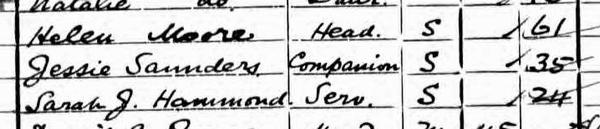 Natalie do. Daur.
Helen Moore Head. S 61
Jessie Saunders Companion S 35
Sarah J. Hammond. Serv. S 24